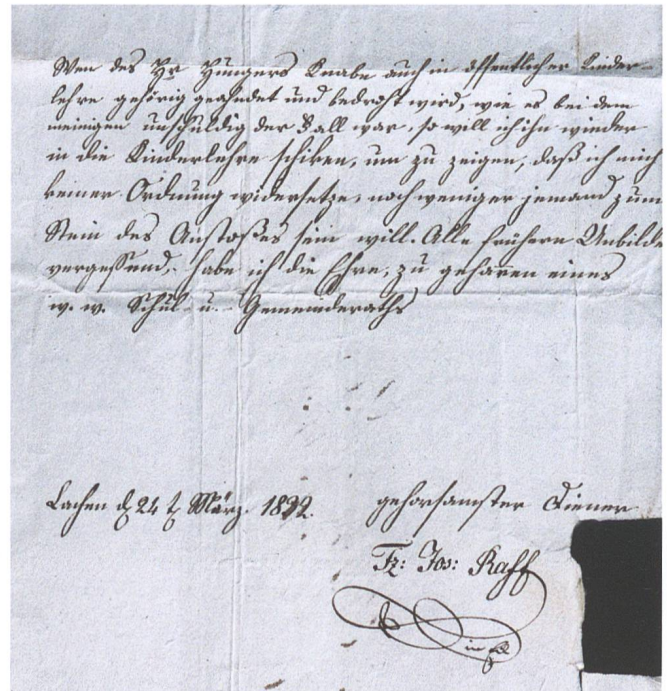 Wen des Hr Hungers Knabe auch in öffentlicher Kinder-
lehre gehörig geahndet und bedroht wird, wie es bei dem
meinigen unschuldig der Fall war, so will ich ihn wieder
in die Kinderlehre schiken, um zu zeigen, daß ich mich
keiner Ordnung widersetze, noch weniger jemand zum
Stein des Anstoßes sein will. Alle frühere Unbilde
vergessend, habe ich die Ehre, zu geharen eines
w. w. Schul- u. Gemeinderaths
Lachen d 24 t März 1832.
gehorsamster Diener
Fz: Jos: Raff